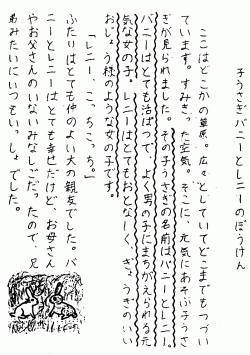 子うさぎバニーとレニーのぼうけん
ここはどこかの草原。広々としていてどこまでもつづい
ています。すみきった空気。そこに、元気にあそぶ子うさ
ぎが見られました。その子うさぎの名前はバニーとレニー。
バニーはとても活ぱつで、よく男の子にまちがえられる元
気な女の子。レニーはとてもおとなしく、ぎょうぎのいい
おじょう様のような女の子です。
「レニー、こっちこっち。」
ふたりはとても仲のよい大の親友でした。バ
ニーとレニーはとても幸せだけど、お母さん
やお父さんのいないみなしごだったので、兄
弟みたいにいつもいっしょでした。